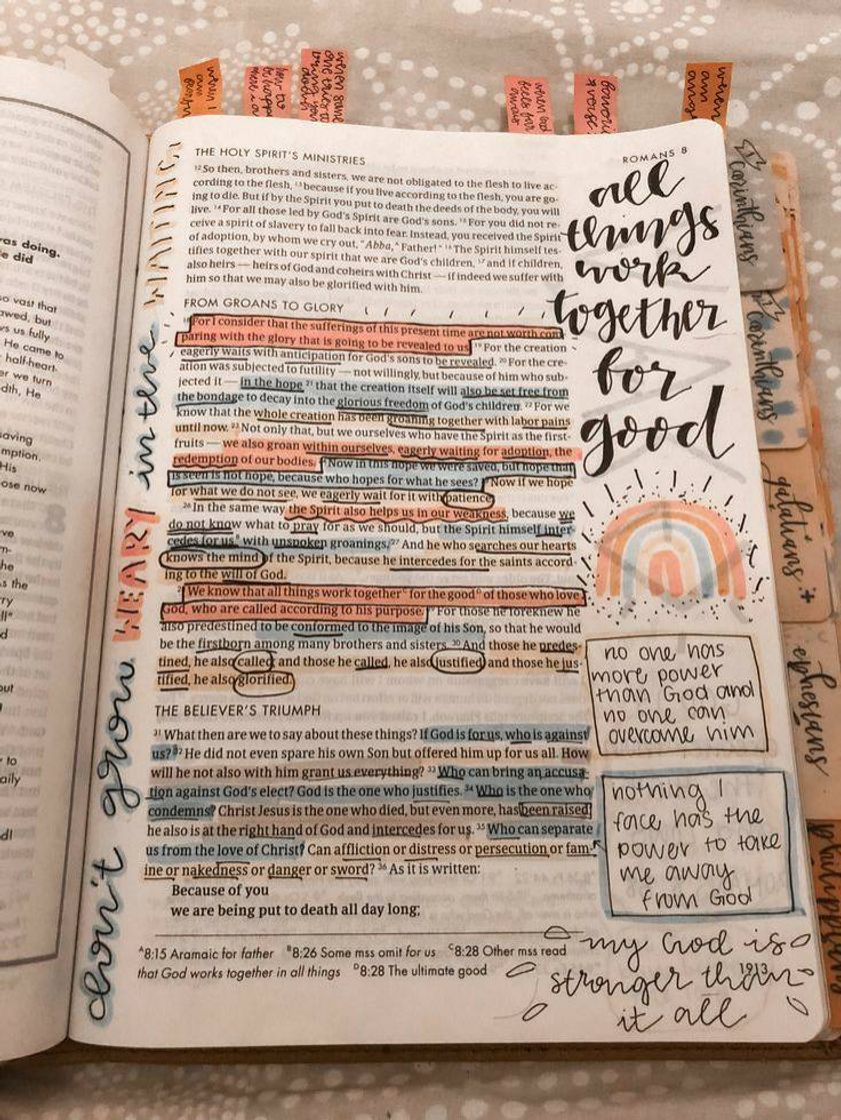 when I
am
how to
be happy
when some
one tries to
bring you
down
when god
feels far
away
favorite
verse
when
am
THE HOLY SPIRIT'S MINISTRIES
ROMANS 8
¹²So then, brothers and sisters, we are not obligated to the flesh to live ac-
cording to the flesh, ¹³because if you live according to the flesh, you are go-
ing to die. But if by the Spirit you put to death the deeds of the body, you will
live. ¹⁴For all those led by God's Spirit are God's sons. ¹⁵For you did not re-
ceive a spirit of slavery to fall back into fear. Instead, you received the Spirit
of adoption, by whom we cry out, "Abba,ᴬ Father!" ¹⁶The Spirit himself tes-
tifies together with our spirit that we are God's children, ¹⁷and if children,
also heirs — heirs of God and coheirs with Christ — if indeed we suffer with
him so that we may also be glorified with him.
FROM GROANS TO GLORY
¹⁸For I consider that the sufferings of this present time are not worth com-
paring with the glory that is going to be revealed to us. ¹⁹For the creation
eagerly waits with anticipation for God's sons to be revealed. ²⁰For the cre-
ation was subjected to futility — not willingly, but because of him who sub-
jected it — in the hope ²¹that the creation itself will also be set free from
the bondage to decay into the glorious freedom of God's children. ²²For we
know that the whole creation has been groaning together with labor pains
until now. ²³Not only that, but we ourselves who have the Spirit as the first-
fruits — we also groan within ourselves, eagerly waiting for adoption, the
redemption of our bodies. ²⁴Now in this hope we were saved, but hope that
is seen is not hope, because who hopes for what he sees? ²⁵Now if we hope
for what we do not see, we eagerly wait for it with patience.
²⁶In the same way the Spirit also helps us in our weakness, because we
do not know what to pray for as we should, but the Spirit himself inter-
cedes for usᴮ with unspoken groanings. ²⁷And he who searches our hearts
knows the mind of the Spirit, because he intercedes for the saints accord-
ing to the will of God.
²⁸We know that all things work togetherᶜ for the goodᴰ of those who love
God, who are called according to his purpose. ²⁹For those he foreknew he
also predestined to be conformed to the image of his Son, so that he would
be the firstborn among many brothers and sisters. ³⁰And those he predes-
tined, he also called; and those he called, he also justified; and those he jus-
tified, he also glorified.
THE BELIEVER'S TRIUMPH
³¹What then are we to say about these things? If God is for us, who is against
us? ³²He did not even spare his own Son but offered him up for us all. How
will he not also with him grant us everything? ³³Who can bring an accusa-
tion against God's elect? God is the one who justifies. ³⁴Who is the one who
condemns? Christ Jesus is the one who died, but even more, has been raised;
he also is at the right hand of God and intercedes for us. ³⁵Who can separate
us from the love of Christ? Can affliction or distress or persecution or fam-
ine or nakedness or danger or sword? ³⁶As it is written:
Because of you
we are being put to death all day long;
ᴬ8:15 Aramaic for father ᴮ8:26 Some mss omit for us ᶜ8:28 Other mss read
that God works together in all things ᴰ8:28 The ultimate good
1913
don't grow WEARY in the WAITING
all
things
work
together
for
good
no one has
more power
than God and
no one can
overcome him
nothing I
face has the
power to take
me away
from God
my God is
stronger than
it all
1 corinthians
2 corinthians
galatians
ephesians
philippians
as doing.
e did
o vast that
wed, but
ws us fully
He came to
half-heart.
er we turn
dth, He
aving
mption.
His
ose now